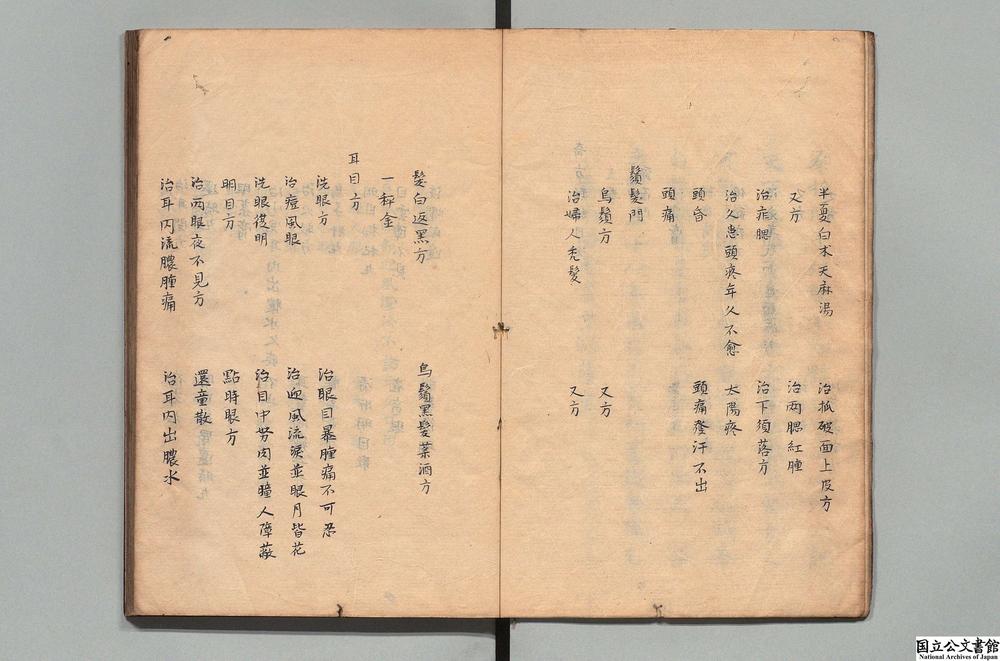 半夏白朮天麻湯　治抓破面上皮方
又方　治兩腮紅腫
治痄腮　治下須落方
治久患頭疼年久不愈　太陽疼
頭昏　頭痛發汗不出
頭痛
鬚髮門
烏鬚方　又方
治婦人禿髮　又方
髮白返黑方　烏鬚黑髮藥酒方
一秤金
耳目方
洗眼方　治眼目暴腫痛不可忍
治痘風眼　治迎風流淚並眼月皆花
洗眼復明　治目中努肉並瞳人障蔽
明目方　點時眼方
治兩眼夜不見方　還童散
治耳內流膿腫痛　治耳內出膿水
国立公文書館
National Archives of Japan